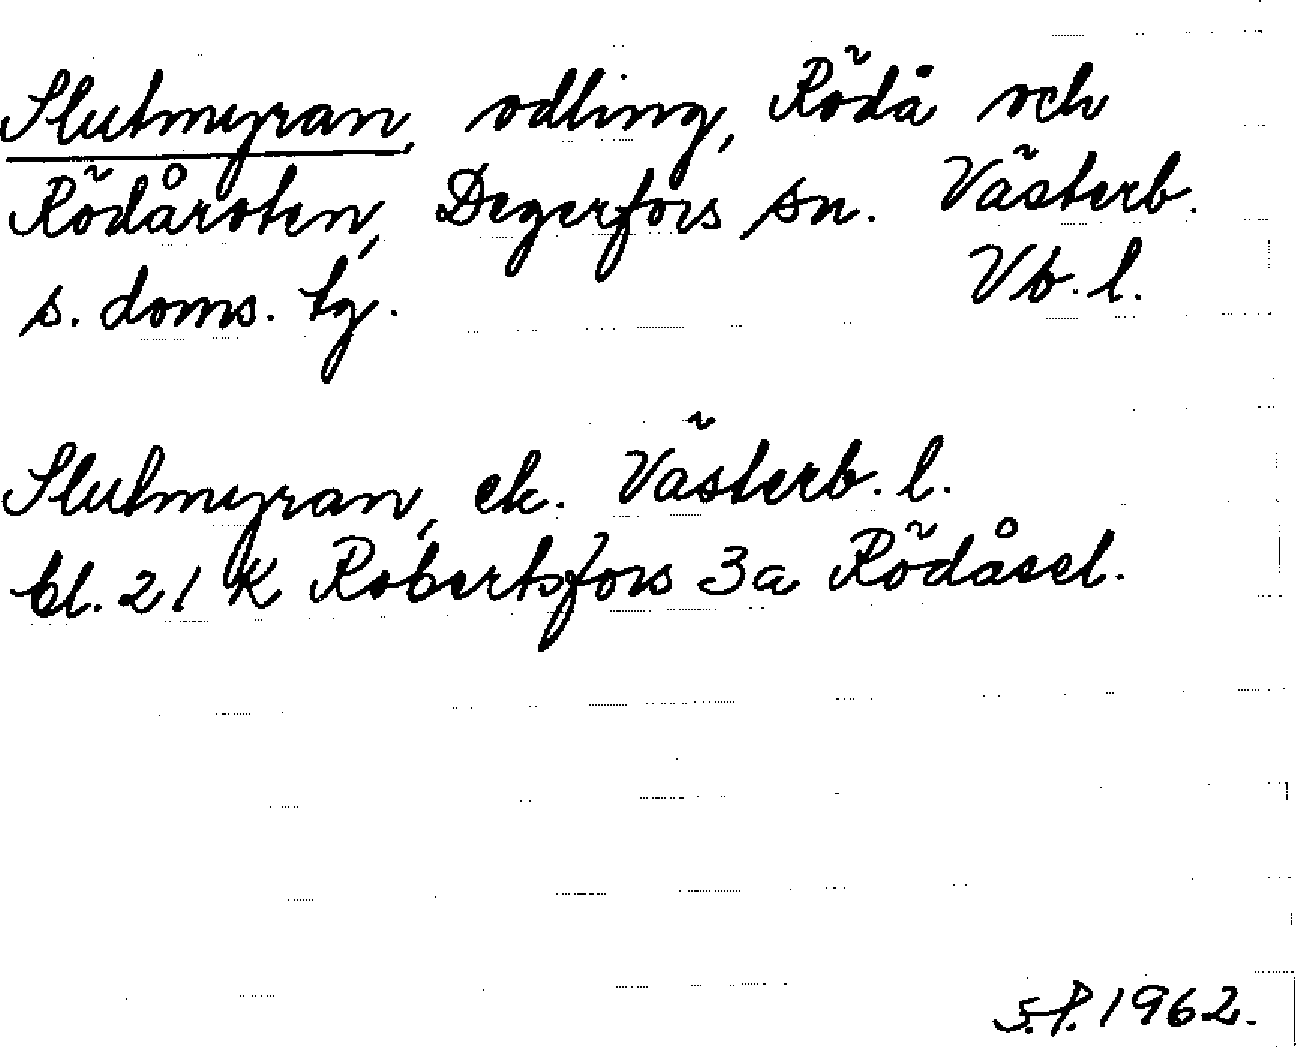 Slutmyran, odling, Rödå och
Rödåroten, Degerfors sn. Västerb.
s. doms. tg. Vb. l.
Slutmyran, ek. Västerb. l.
bl. 21 K Robertsfors 3a Rödåsel.
S.P. 1962.